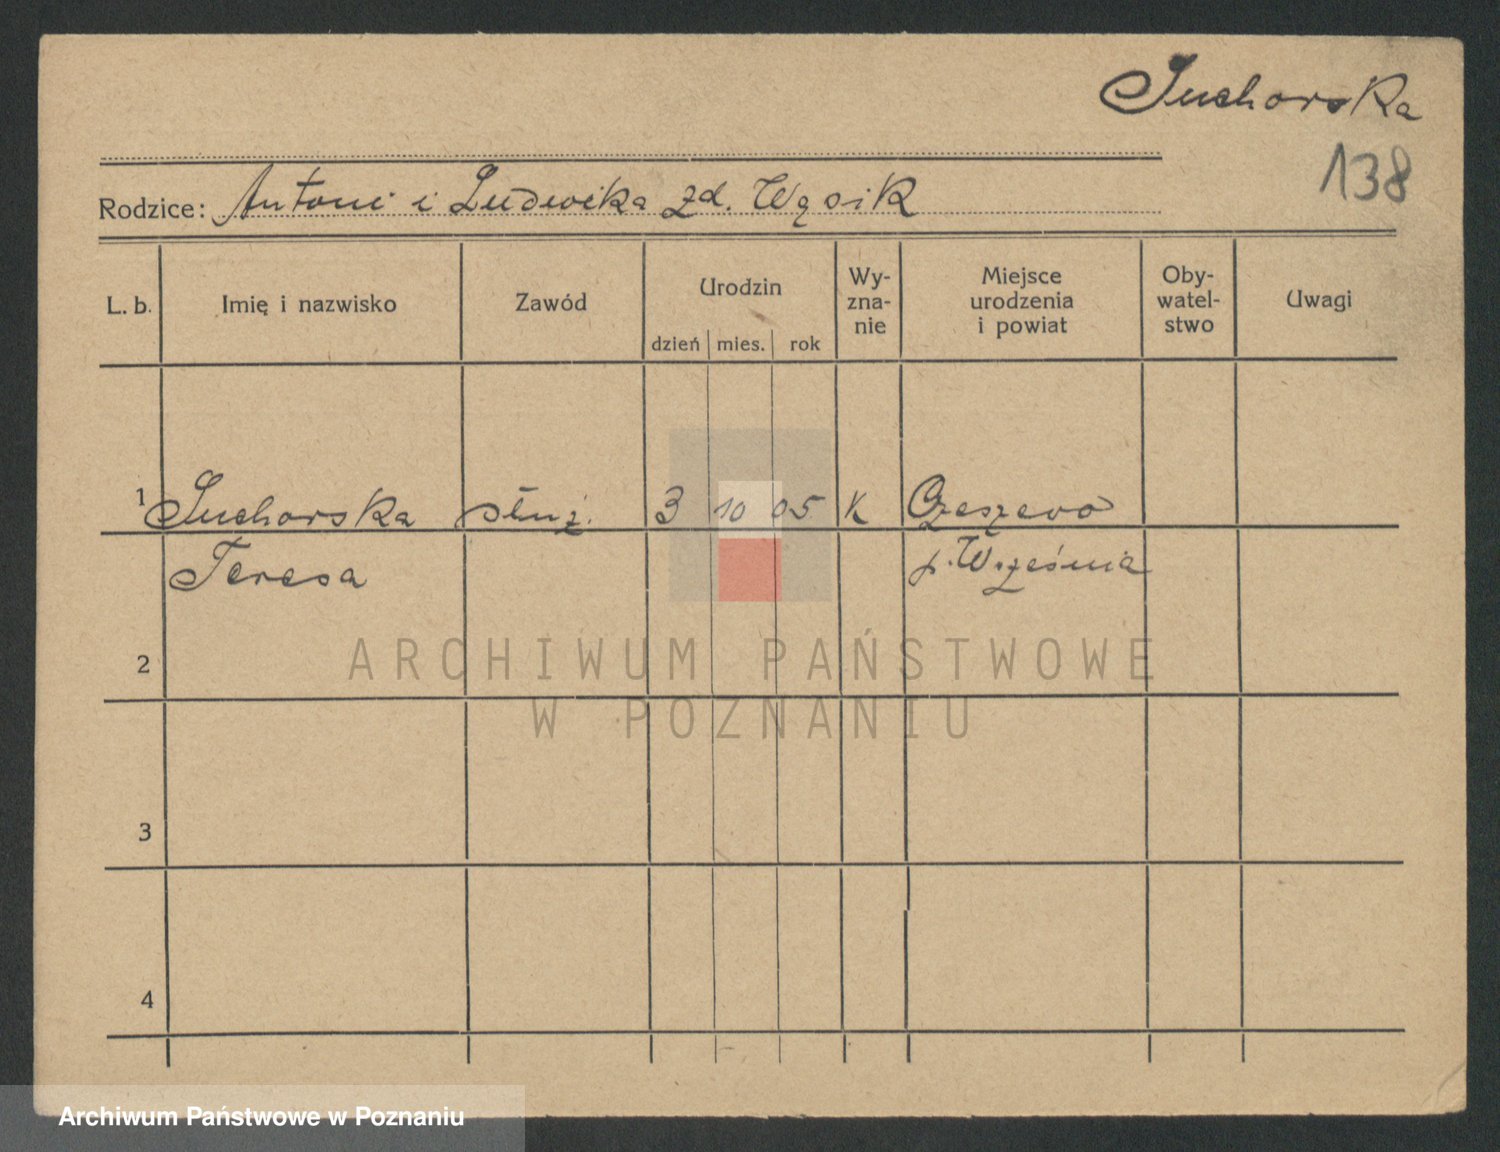 Suchorska
138
Rodzice: Antoni i Ludwika zd. Wąsik
L. b. Imię i nazwisko Zawód Urodzin dzień mies. rok Wy-zna-nie Miejsce urodzenia i powiat Oby-watel-stwo Uwagi
1 Suchorska służ. 3 10 05 K Czeszewo
Teresa p. Września
2
ARCHIWUM PAŃSTWOWE
W POZNANIU
3
4
Archiwum Państwowe w Poznaniu